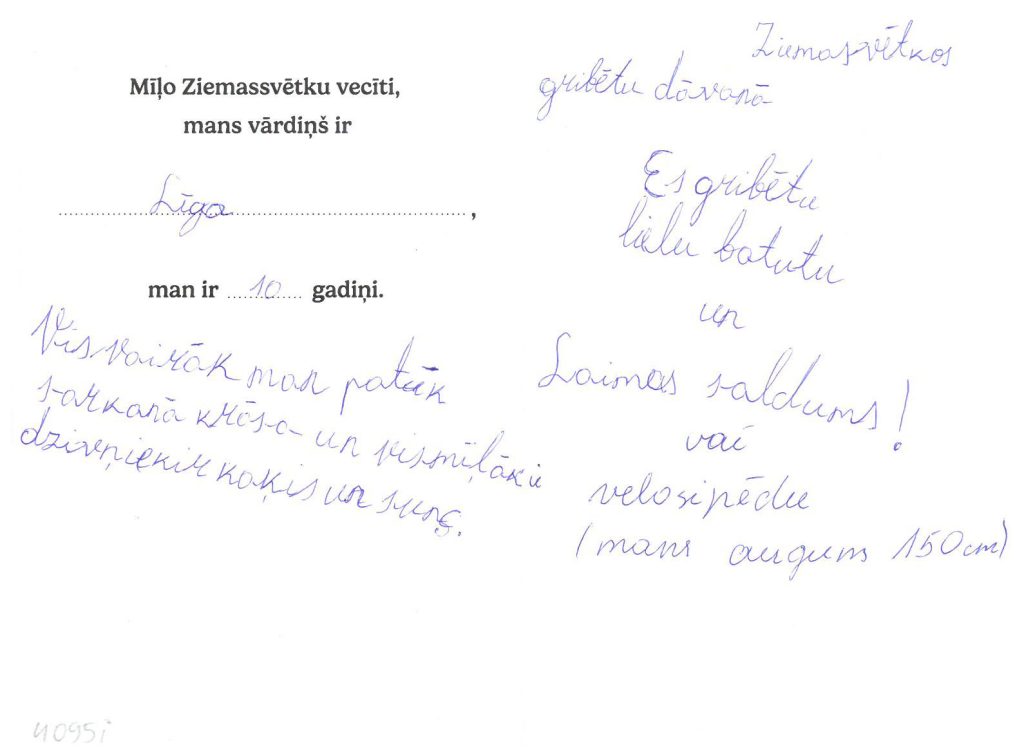 Mīļo Ziemassvētku vecīti,
mans vārdiņš ir
Līga,
man ir 10 gadiņi.
Visvairāk man patīk
sarkanā krāsa un vismīļākie
dzīvnieki ir kaķis un suns.
Ziemasvētkos
gribētu dāvanā
Es gribētu
lielu batutu
un
Laimas saldums!
vai
velosipēdu
(mans augums 150cm)
4095i